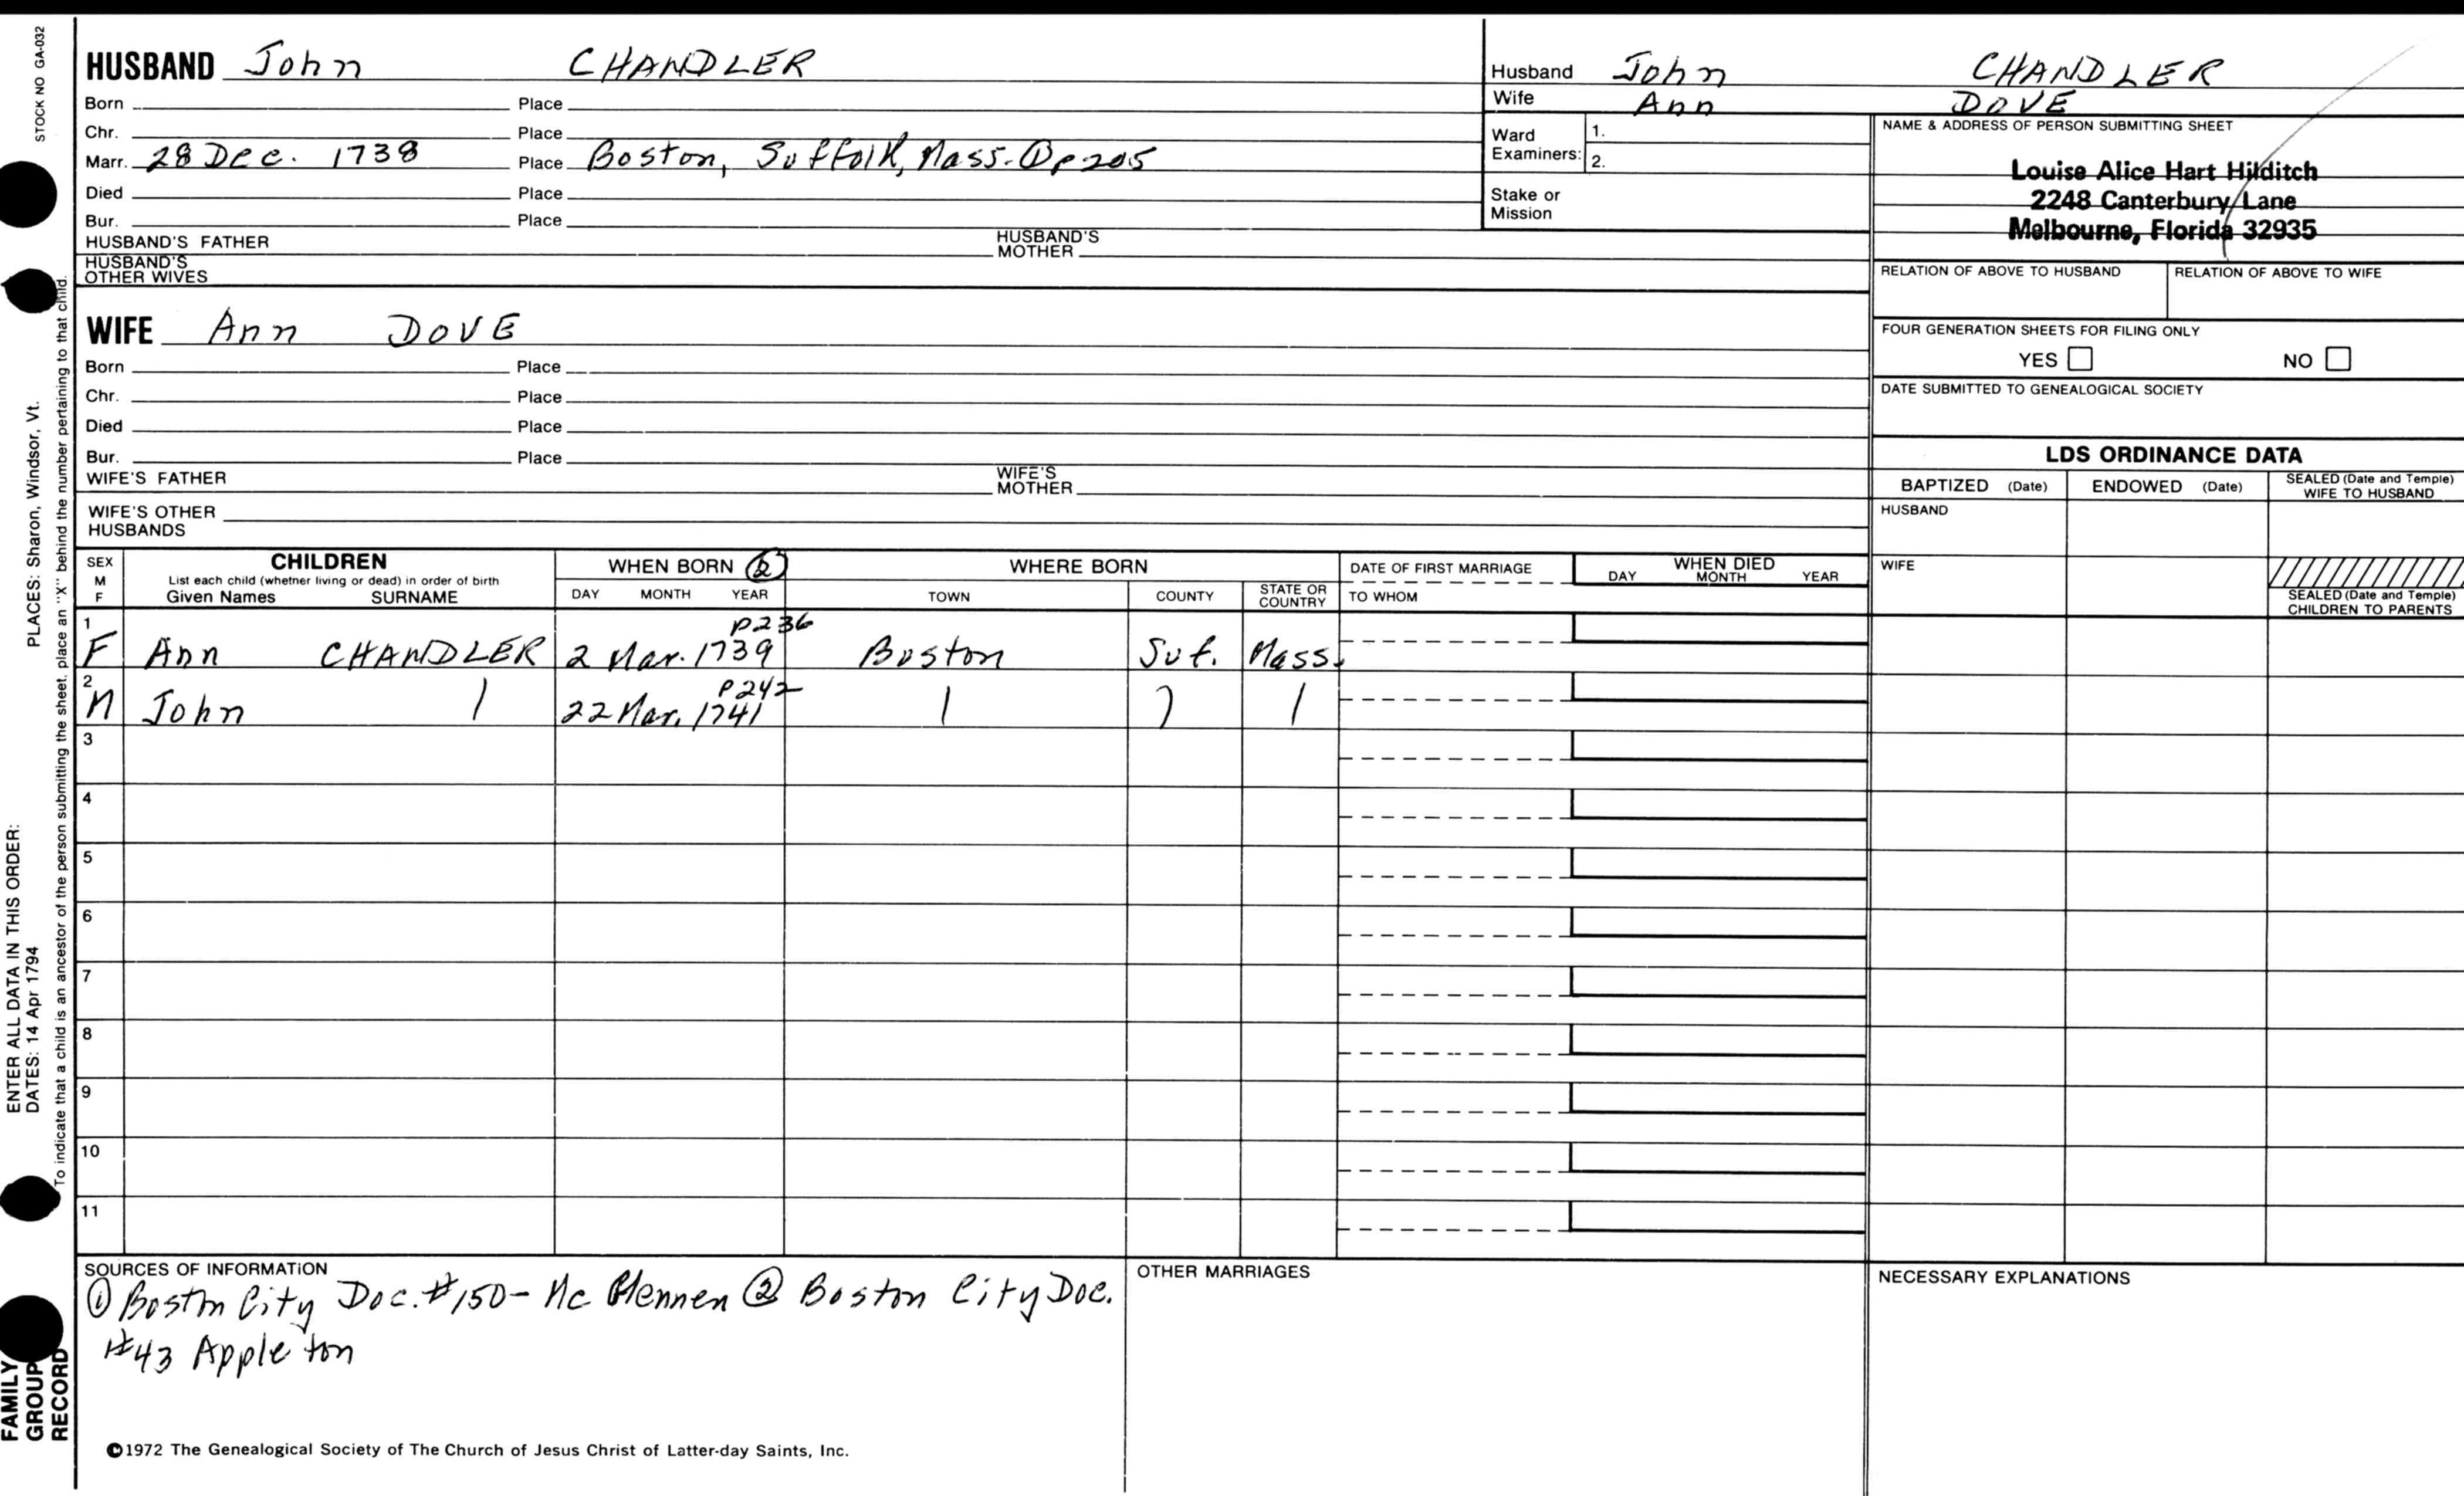 STOCK NO GA-032
PLACES: Sharon, Windsor, Vt.
ENTER ALL DATA IN THIS ORDER:
DATES: 14 Apr 1794
To indicate that a child is an ancestor of the person submitting the sheet, place an "X" behind the number pertaining to that child.
FAMILY
GROUP
RECORD
HUSBAND John CHANDLER
Born Place
Chr. Place
Marr. 28 Dec. 1738 Place Boston, Suffolk, Mass. ① p205
Died Place
Bur. Place
HUSBAND'S FATHER HUSBAND'S MOTHER
HUSBAND'S OTHER WIVES
WIFE Ann DOVE
Born Place
Chr. Place
Died Place
Bur. Place
WIFE'S FATHER WIFE'S MOTHER
WIFE'S OTHER
HUSBANDS
Husband John CHANDLER
Wife Ann DOVE
Ward 1.
Examiners: 2.
Stake or
Mission
NAME & ADDRESS OF PERSON SUBMITTING SHEET
Louise Alice Hart Hilditch
2248 Canterbury Lane
Melbourne, Florida 32935
RELATION OF ABOVE TO HUSBAND RELATION OF ABOVE TO WIFE
FOUR GENERATION SHEETS FOR FILING ONLY
YES NO
DATE SUBMITTED TO GENEALOGICAL SOCIETY
LDS ORDINANCE DATA
BAPTIZED (Date) ENDOWED (Date) SEALED (Date and Temple) WIFE TO HUSBAND
HUSBAND
WIFE
SEALED (Date and Temple)
CHILDREN TO PARENTS
SEX M F CHILDREN WHEN BORN ② WHERE BORN DATE OF FIRST MARRIAGE WHEN DIED
List each child (whether living or dead) in order of birth
Given Names SURNAME DAY MONTH YEAR TOWN COUNTY STATE OR COUNTRY TO WHOM DAY MONTH YEAR
1 p236
F Ann CHANDLER 2 Mar. 1739 Boston Suf. Mass.
2 p242
M John 22 Mar. 1741
3
4
5
6
7
8
9
10
11
SOURCES OF INFORMATION
① Boston City Doc. #150 - Mc Glennen ② Boston City Doc.
#43 Appleton
OTHER MARRIAGES
NECESSARY EXPLANATIONS
©1972 The Genealogical Society of The Church of Jesus Christ of Latter-day Saints, Inc.